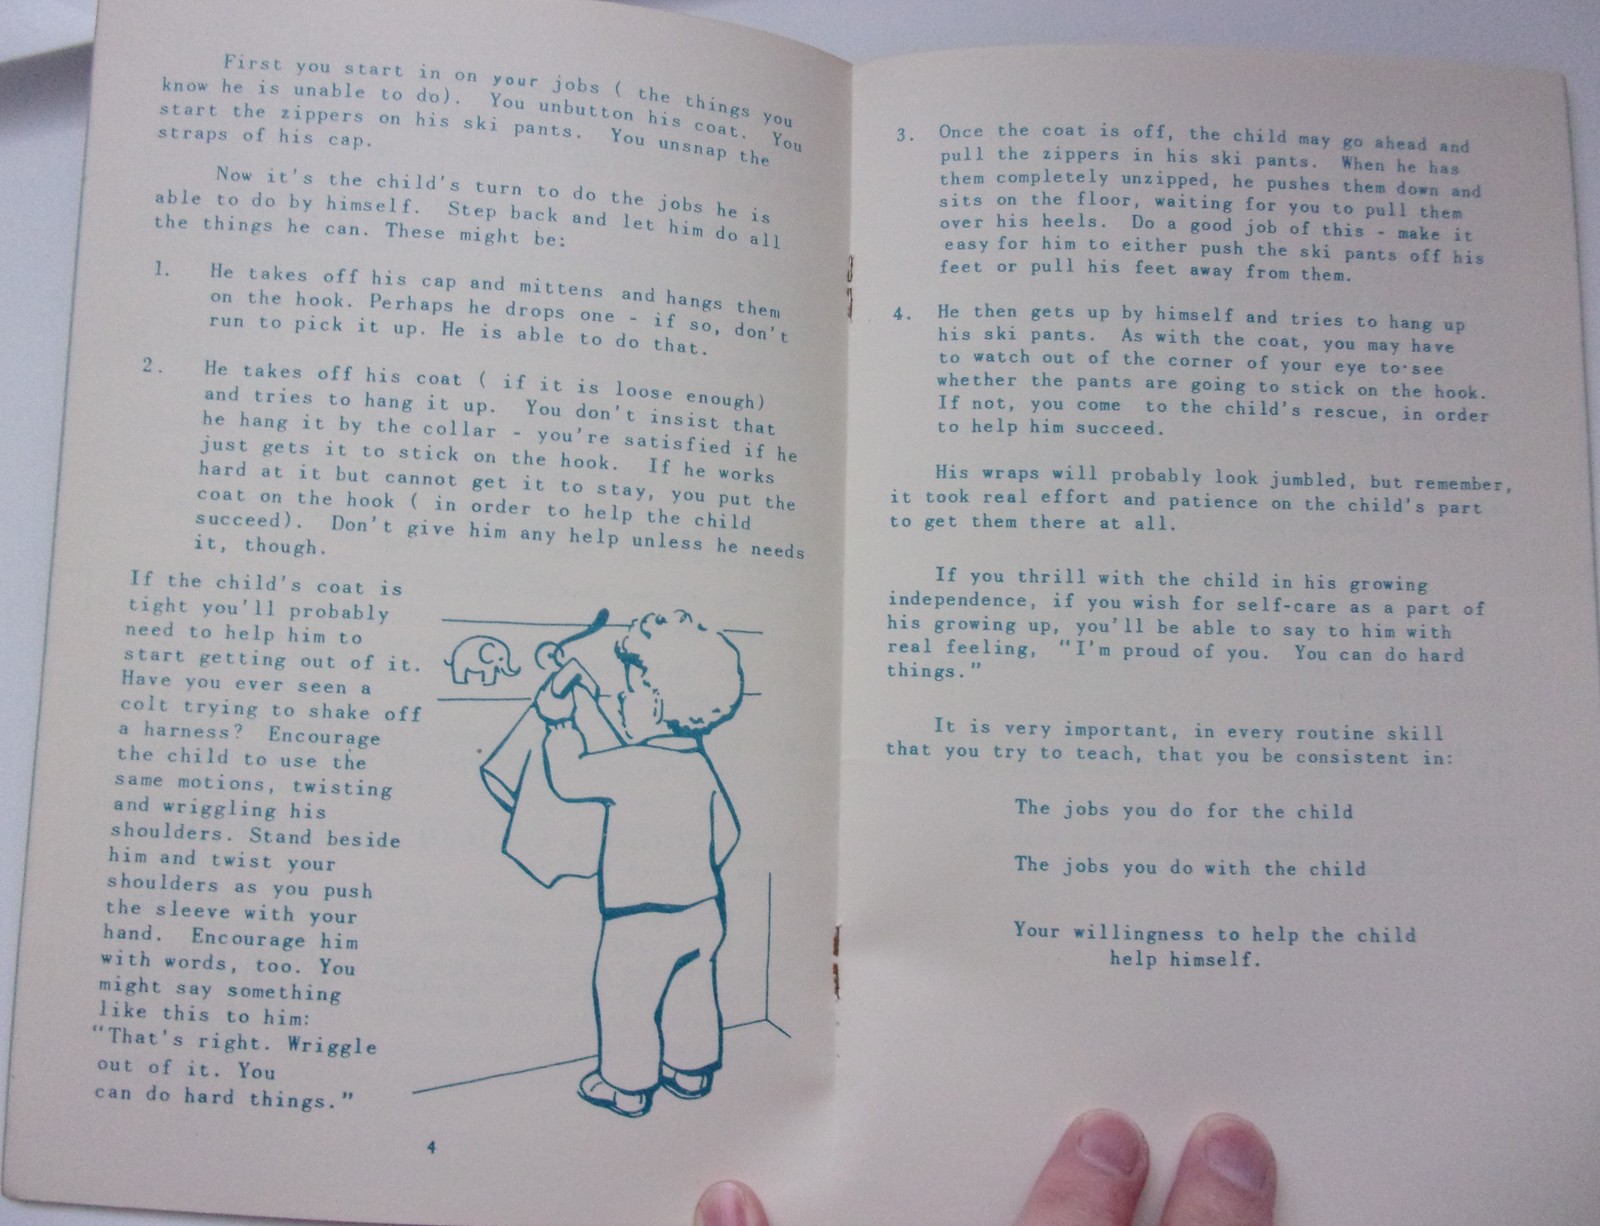 First you start in on your jobs ( the things you
know he is unable to do). You unbutton his coat. You
start the zippers on his ski pants. You unsnap the
straps of his cap.
Now it's the child's turn to do the jobs he is
able to do by himself. Step back and let him do all
the things he can. These might be:
1. He takes off his cap and mittens and hangs them
on the hook. Perhaps he drops one - if so, don't
run to pick it up. He is able to do that.
2. He takes off his coat ( if it is loose enough)
and tries to hang it up. You don't insist that
he hang it by the collar - you're satisfied if he
just gets it to stick on the hook. If he works
hard at it but cannot get it to stay, you put the
coat on the hook ( in order to help the child
succeed). Don't give him any help unless he needs
it, though.
If the child's coat is
tight you'll probably
need to help him to
start getting out of it.
Have you ever seen a
colt trying to shake off
a harness? Encourage
the child to use the
same motions, twisting
and wriggling his
shoulders. Stand beside
him and twist your
shoulders as you push
the sleeve with your
hand. Encourage him
with words, too. You
might say something
like this to him:
"That's right. Wriggle
out of it. You
can do hard things."
4
3. Once the coat is off, the child may go ahead and
pull the zippers in his ski pants. When he has
them completely unzipped, he pushes them down and
sits on the floor, waiting for you to pull them
over his heels. Do a good job of this - make it
easy for him to either push the ski pants off his
feet or pull his feet away from them.
4. He then gets up by himself and tries to hang up
his ski pants. As with the coat, you may have
to watch out of the corner of your eye to see
whether the pants are going to stick on the hook.
If not, you come to the child's rescue, in order
to help him succeed.
His wraps will probably look jumbled, but remember,
it took real effort and patience on the child's part
to get them there at all.
If you thrill with the child in his growing
independence, if you wish for self-care as a part of
his growing up, you'll be able to say to him with
real feeling, "I'm proud of you. You can do hard
things."
It is very important, in every routine skill
that you try to teach, that you be consistent in:
The jobs you do for the child
The jobs you do with the child
Your willingness to help the child
help himself.